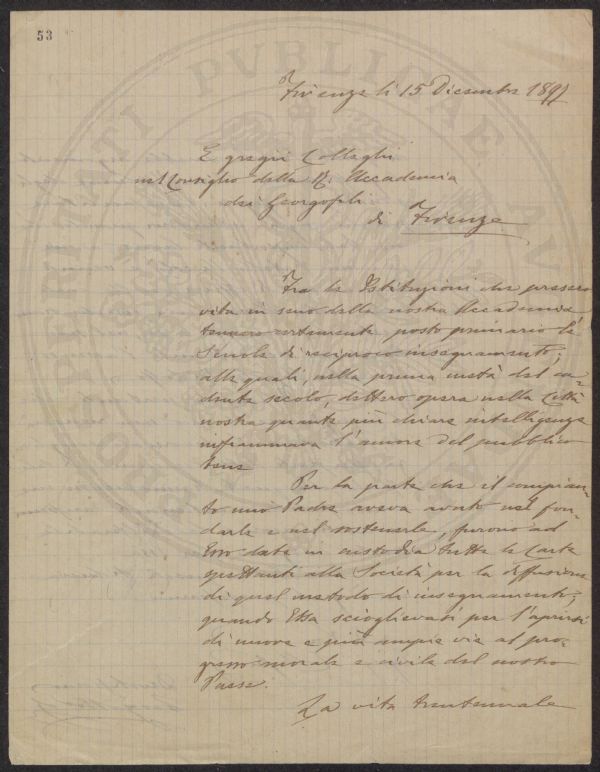 53
Firenze li 15 Dicembre 1897
Egregii Colleghi
nel Consiglio della R. Accademia
dei Georgofili
di Firenze
Tra le Istituzioni che presero
vita in seno della nostra Accademia
tennero certamente posto primario le
Scuole di reciproco insegnamento;
alle quali, nella prima metà del ca-
dente secolo, dettero opera nella Città
nostra quante più chiare intelligenze
infiammava l'amore del pubblico
bene
Per la parte che il compian-
to mio Padre aveva avuto nel fon-
darle e nel sostenerle, furono ad
Esso date in custodia tutte le Carte
spettanti alla Società per la diffusione
di quel metodo di insegnamento;
quando Essa scioglievasi per l'aprirsi
di nuove e più ampie vie al pro-
gresso morale e civile del nostro
Paese.
La vita trentennale